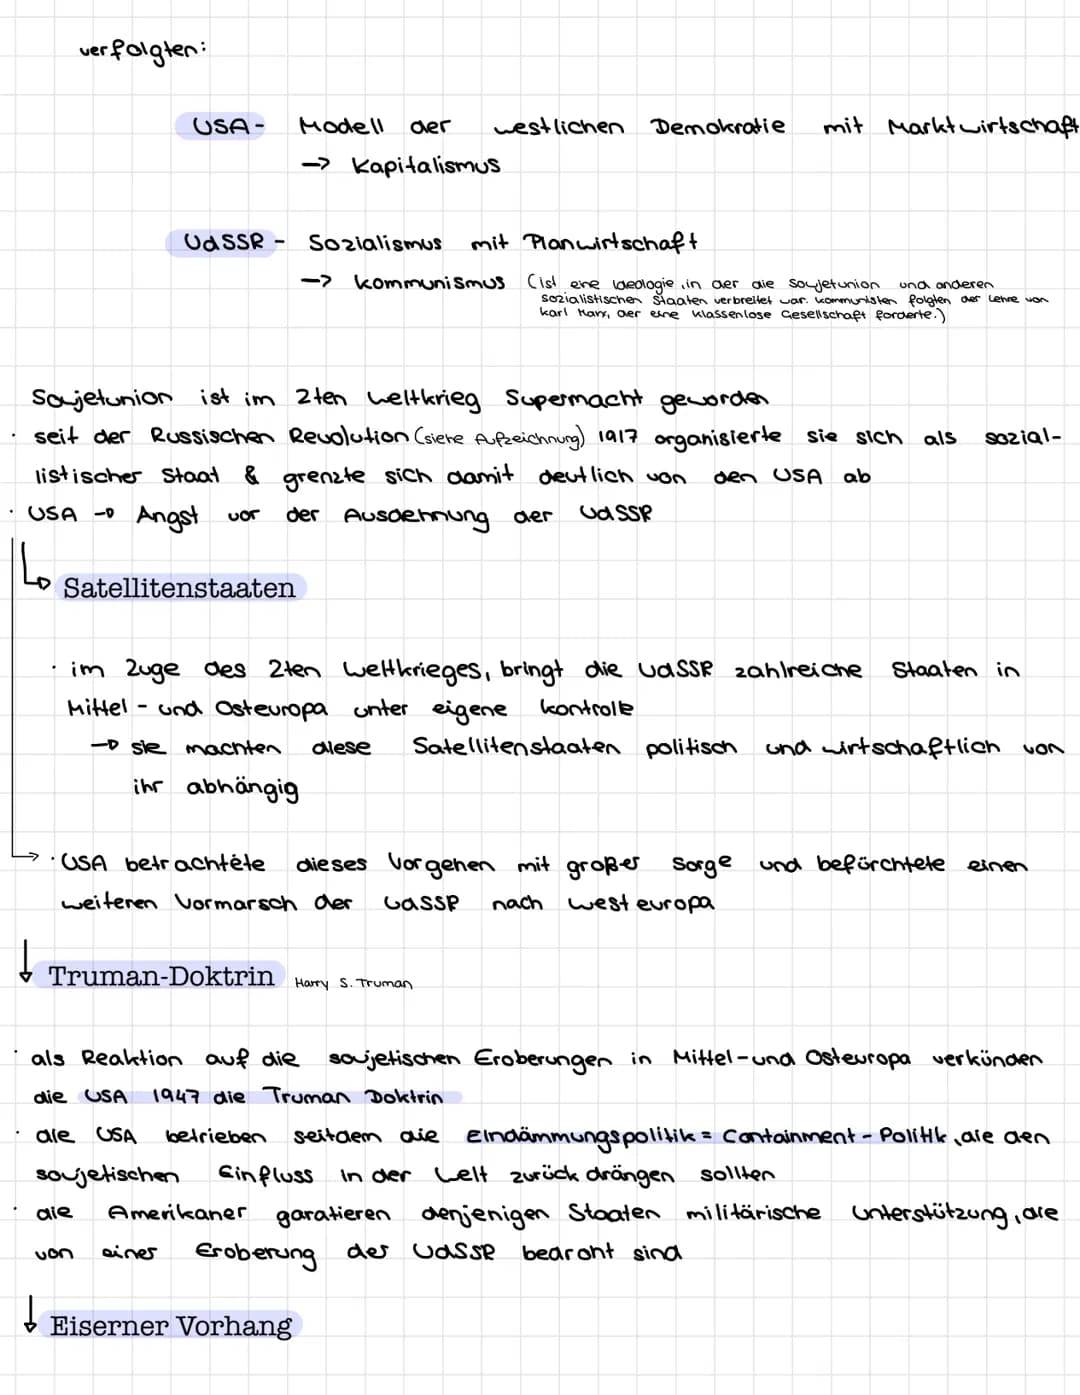 verfolgten:
USA - Modell der westlichen Demokratie mit Marktwirtschaft
→ Kapitalismus
UdSSR - Sozialismus mit Planwirtschaft
→ Kommunismus (ist eine Ideologie, in der die Sowjetunion und anderen
sozialistischen Staaten verbreitet war. Kommunisten folgten der Lehre von
Karl Marx, der eine klassenlose Gesellschaft forderte.)
Sowjetunion ist im 2ten Weltkrieg Supermacht geworden
· seit der Russischen Revolution (siehe Aufzeichnung) 1917 organisierte sie sich als sozial-
listischer Staat & grenzte sich damit deutlich von den USA ab
· USA → Angst vor der Ausdehnung der UdSSR
↳ Satellitenstaaten
· im Zuge des 2ten Weltkrieges, bringt die UdSSR zahlreiche Staaten in
Mittel- und Osteuropa unter eigene Kontrolle
→ sie machten diese Satellitenstaaten politisch und wirtschaftlich von
ihr abhängig
→ · USA betrachtete dieses Vorgehen mit großer Sorge und befürchtete einen
weiteren Vormarsch der UdSSR nach Westeuropa
↓ Truman-Doktrin Harry S. Truman
· als Reaktion auf die sowjetischen Eroberungen in Mittel-und Osteuropa verkünden
die USA 1947 die Truman Doktrin
· die USA betrieben seitdem die Eindämmungspolitik = Containment - Politik, die den
sowjetischen Einfluss in der Welt zurück drängen sollten
· die Amerikaner garatieren denjenigen Staaten militärische Unterstützung, die
von einer Eroberung der UdSSR bedroht sind
↓ Eiserner Vorhang